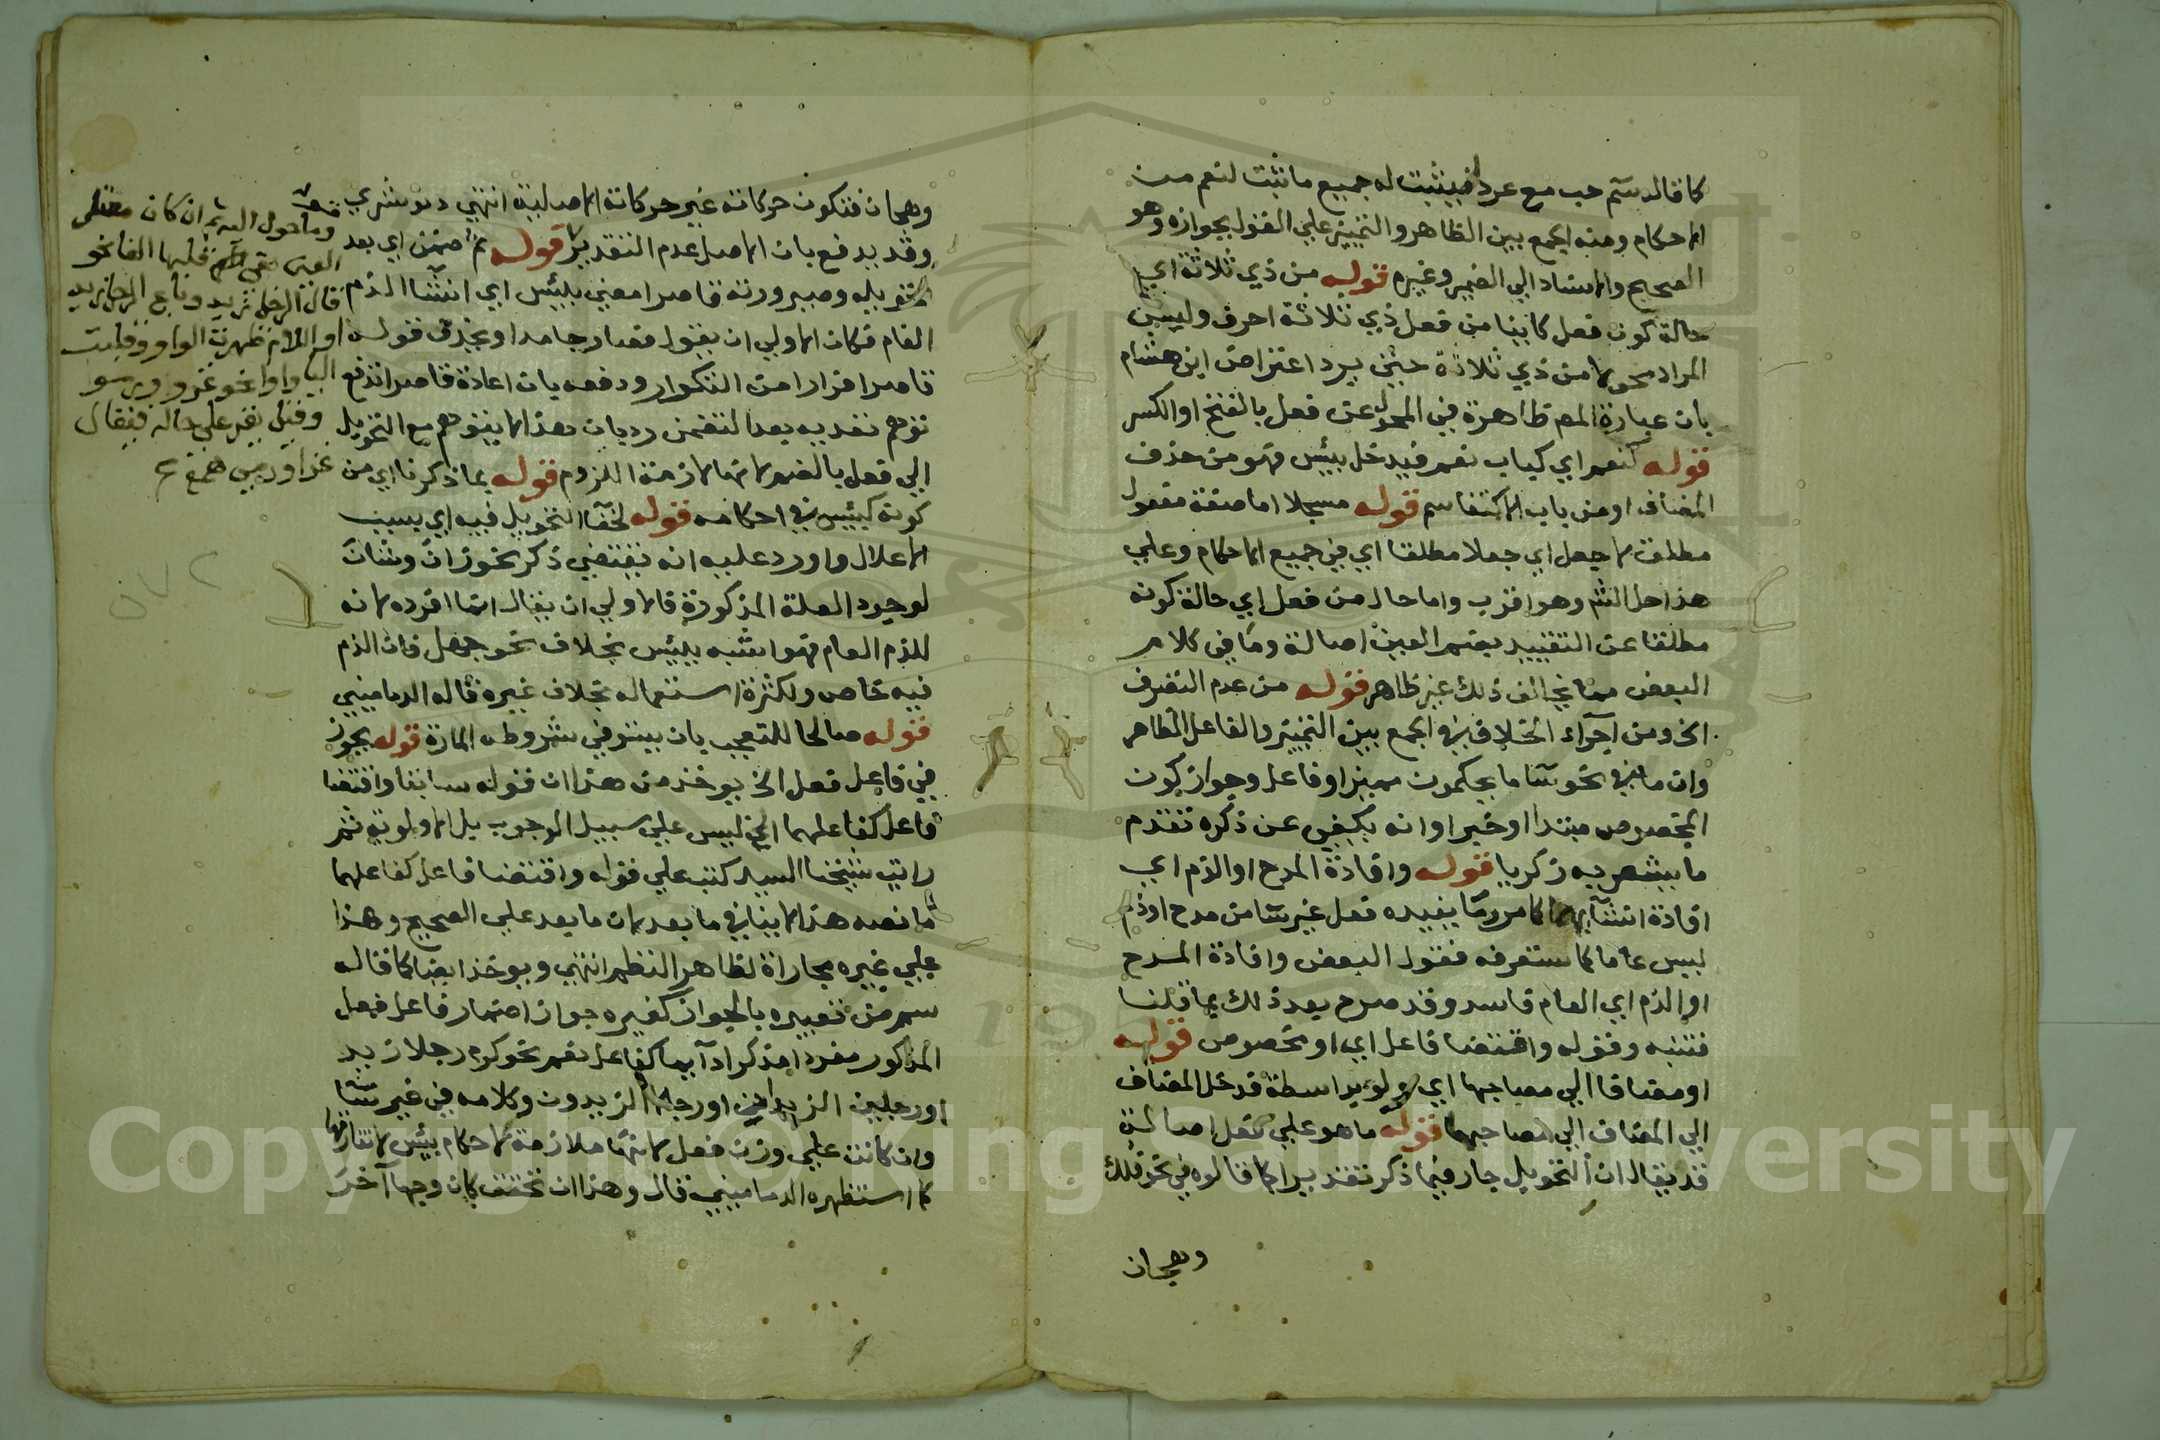 كما قاله سم حب مع عر دا فيثبت له جميع ما ثبت لنعم من
الاحكام ومنه الجمع بين الظاهر والتمييز علي القول بجوازه وهو
الصحيح والاسناد الي الضمير وغيره قوله من ذي ثلاثة اي
حالة كون فعل كائنا من فعل ذي ثلاثة احرف وليس
المراد محولا من ذي ثلاثة حتي يرد اعتراض ابن هشام
بان عبارة المص ظاهرة في المحول عن فعل بالفتح او الكسر
قوله كنعم اي كباب نعم فيدخل بيئس فهو من حذف
المضاف او من باب الاكتفا سم قوله مسجلا اما صفة مفعول
مطلق لاجعل اي جعلا مطلقا اي في جميع الاحكام وعلي
هذا حل الشم وهو اقرب واما حال من فعل اي حالة كونه
مطلقا عن التقييد بضم العين اصالة وما في كلام
البعض مما يخالف ذلك غير ظاهر قوله من عدم التصرف
الخ ومن اجراء الخلاف في الجمع بين التمييز والفاعل الظاهر
وان ما في نحو سا ما يحكمون مميز او فاعل وجواز كون
المخصوص مبتدا او خبرا وانه يكفي عن ذكره تقدم
ما يشعر به زكريا قوله وافادة المدح او الذم اي
افادة انشائهما كما مر وما يفيده فعل غير سا من مدح او ذم
ليس عاما كما ستعرفه فقول البعض وافادة المدح
او الذم اي العام فاسد وقد صرح بعد ذلك بما قلنا
فتنبه وقوله واقتضا فاعل اي او مخصوص قوله
او مضافا الي مصاحبها اي ولو بواسطة فدخل المضاف
الي المضاف الي مصاحبها قوله ما هو علي فعل اصالة
قد يقال ان التحويل جار فيما ذكر تقديرا كما قالوه في نحو فلك
وهجان
وهجان فتكون حركاته غير حركاته الاصلية انتهي دنوشري
وقد يدفع بان الاصل عدم التقدير قوله ثم ضمن اي بعد
تحويله وصيرورته قاصرا معني بيئس اي انشا الذم
العام فكان الاولي ان يقول فصار جامدا ويحذف قوله
قاصرا فرارا من التكرار ودفعه بان اعادة قاصرا تدفع
توهم تعديه بعد التضمن رد بان هذا لا يتوهم مع التحويل
الي فعل بالضم لانها لازمة اللزوم قوله بما ذكرنا اي من
كونه كبيئس في احكامه قوله لخفا التحويل فيه اي بسبب
الاعلال واورد عليه انه يقتضي ذكر نحو زان وشان
لوجود العلة المذكورة فالاولي ان يقال انما افرده لانه
للذم العام فهو اشبه ببيئس بخلاف نحو جهل فان الذم
فيه خاص ولكثرة استعماله بخلاف غيره قاله الدماميني
قوله صالحا للتعجب بان يستوفي شروطه المارة قوله يجوز
في فاعل فعل الخ يوخذ من هذا ان قوله سابقا واقتضا
فاعل كفاعلهما الخ ليس علي سبيل الوجوب بل الاولوية ثم
رايت شيخنا السيد كتب علي قوله واقتضا فاعل كفاعلهما
ما نصه هذا لا ينافي ما بعد لان ما بعد علي الصحيح وهذا
علي غيره مجاراة لظاهر النظم انتهي ويوخذ ايضا كما قاله
سم من تعبيره بالجواز كغيره جواز اضمار فاعل فعل
المذكور مفردا مذكرا دائما كفاعل نعم نحو كرم رجلا زيد
او رجلين الزيدان او رجالا الزيدون وكلامه في غير سا
وان كانت علي وزن فعل لانها ملازمة لاحكام بيئس لا تفارقها
كما استظهره الدماميني قال وهذا ان تحقق كان وجها آخر
وما حول اليه ثم ان كان معتل
العين بقي قلبها الفا نحو
قال الرجل زيد وباع الرجل زيد
او اللام ظهرت الواو وقلبت
اليا واوا نحو غزو ورمو
وقيل يقر علي حاله فيقال
غزا ورمي همع